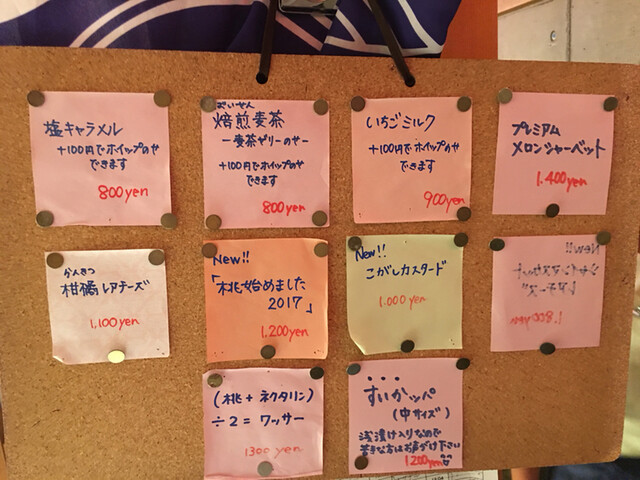 塩キャラメル
+100円でホイップのせ
できます
800yen
ばいせん
焙煎麦茶
ー麦茶ゼリーのせー
+100円でホイップのせ
できます
800yen
いちごミルク
+100円でホイップのせ
できます
900yen
プレミアム
メロンシャーベット
1,400yen
かんきつ
柑橘レアチーズ
1,100yen
New!!
「桃始めました
2017」
1,200yen
New!!
こがしカスタード
1,000yen
New!!
レアチーズ
1,800yen
(桃+ネクタリン)
÷2=ワッサー
1300yen
すいかッパ
(中サイズ)
浅漬け入りなので
苦手な方はお声がけ下さい
1200yen